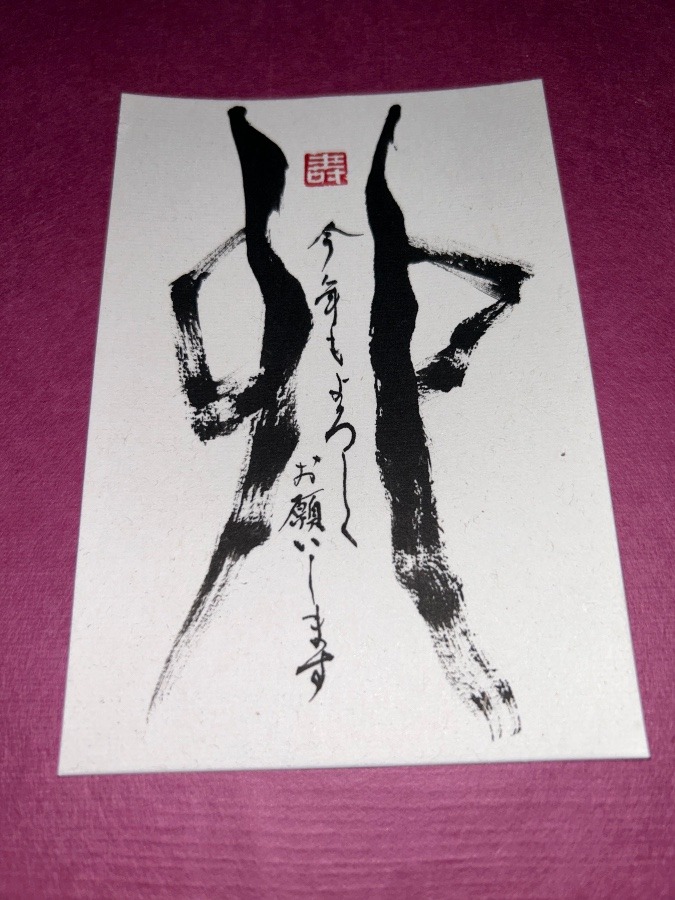 卯
寿
今年もよろしく
お願いします